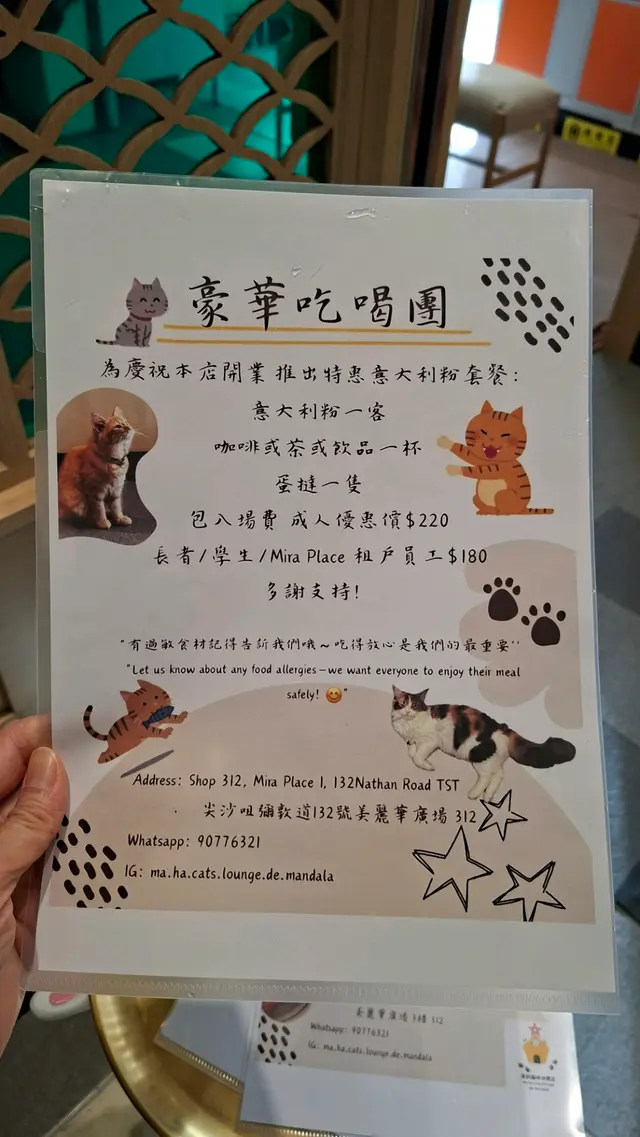 豪華吃喝團
為慶祝本店開業推出特惠意大利粉套餐:
意大利粉一客
咖啡或茶或飲品一杯
蛋撻一隻
包入場費 成人優惠價$220
長者/學生/Mira Place 租戶員工$180
多謝支持!
"有過敏食材記得告訴我們哦~吃得放心是我們的最重要"
"Let us know about any food allergies—we want everyone to enjoy their meal
safely! 😊"
Address: Shop 312, Mira Place 1, 132Nathan Road TST
尖沙咀彌敦道132號美麗華廣場 312
Whatsapp: 90776321
IG: ma.ha.cats.lounge.de.mandala
Whatsapp: 90776321
IG: ma.ha.cats.lounge.de.mandala